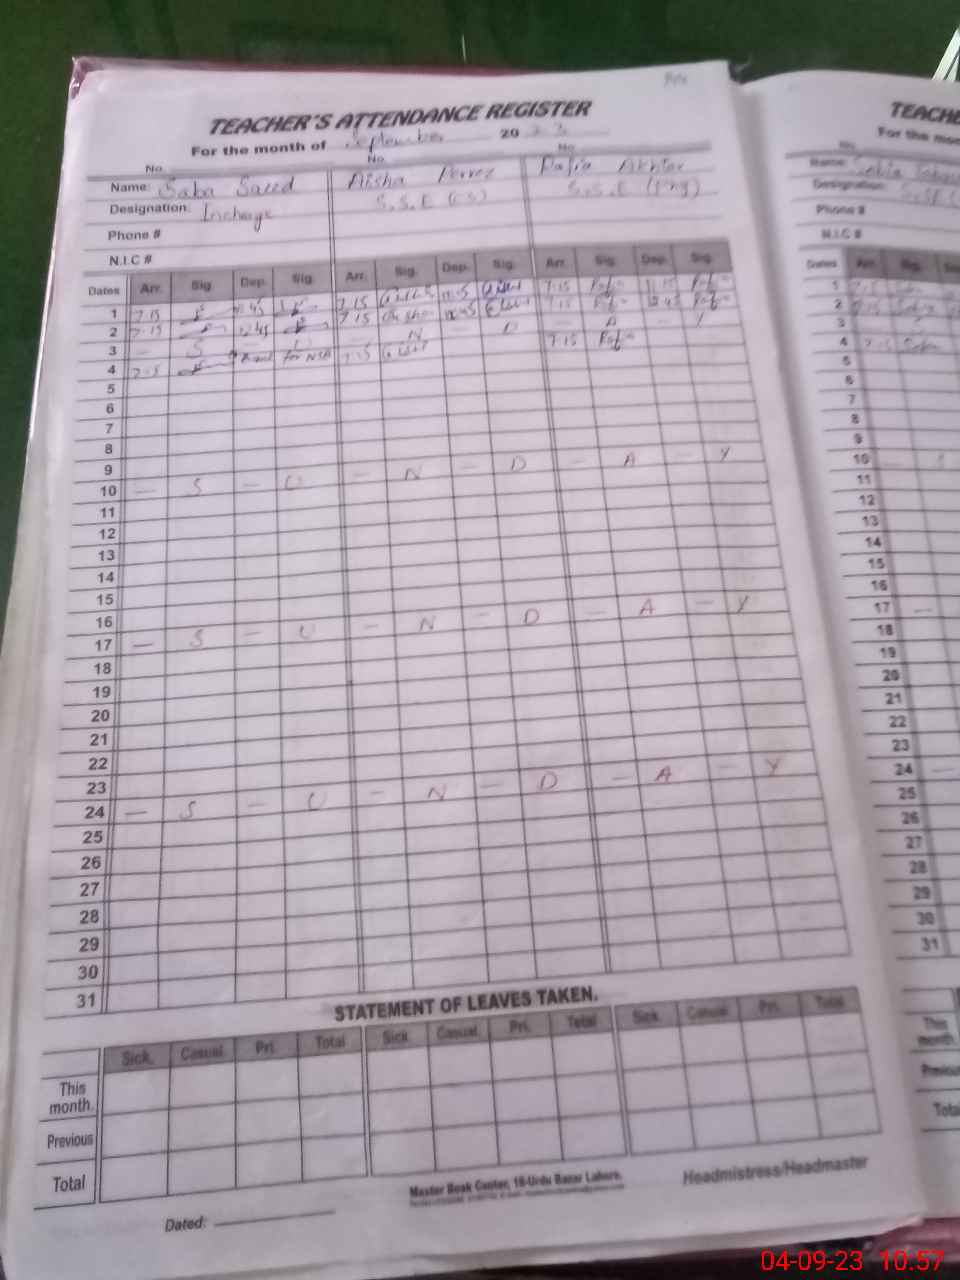 TEACHER'S ATTENDANCE REGISTER
For the month of September 2023
No. No. No.
Name: Saba Saeed Aisha Pervez Rafia Akhtar
Designation: Incharge S.S.E (CS) S.S.E (Eng)
Phone #
N.I.C #
Dates Arr. Sig. Dep. Sig. Arr. Sig. Dep. Sig. Arr. Sig. Dep. Sig.
1 7.15 7.15 7.15
2 7.15 12.45 7.15 12.45 7.15 12.45
3 — S U — N — D — A — Y
4 7.15 for 7.15 7.15
5
6
7
8
9
10 — S — U — N — D — A — Y
11
12
13
14
15
16
17 — S — U — N — D — A — Y
18
19
20
21
22
23
24 — S — U — N — D — A — Y
25
26
27
28
29
30
31
STATEMENT OF LEAVES TAKEN.
Sick. Casual. Pri. Total Sick Casual. Pri. Total Sick. Casual. Pri. Total
This month.
Previous
Total
Master Book Center, 18-Urdu Bazar Lahore.
Headmistress/Headmaster
Dated:
TEACH
For the mon
Name:
Designation:
Phone #
N.I.C #
Dates Arr. Sig.
1
2
3
4
5
6
7
8
9
10
11
12
13
14
15
16
17 —
18
19
20
21
22
23
24 —
25
26
27
28
29
30
31
This month.
Previous
Total
04-09-23 10.57